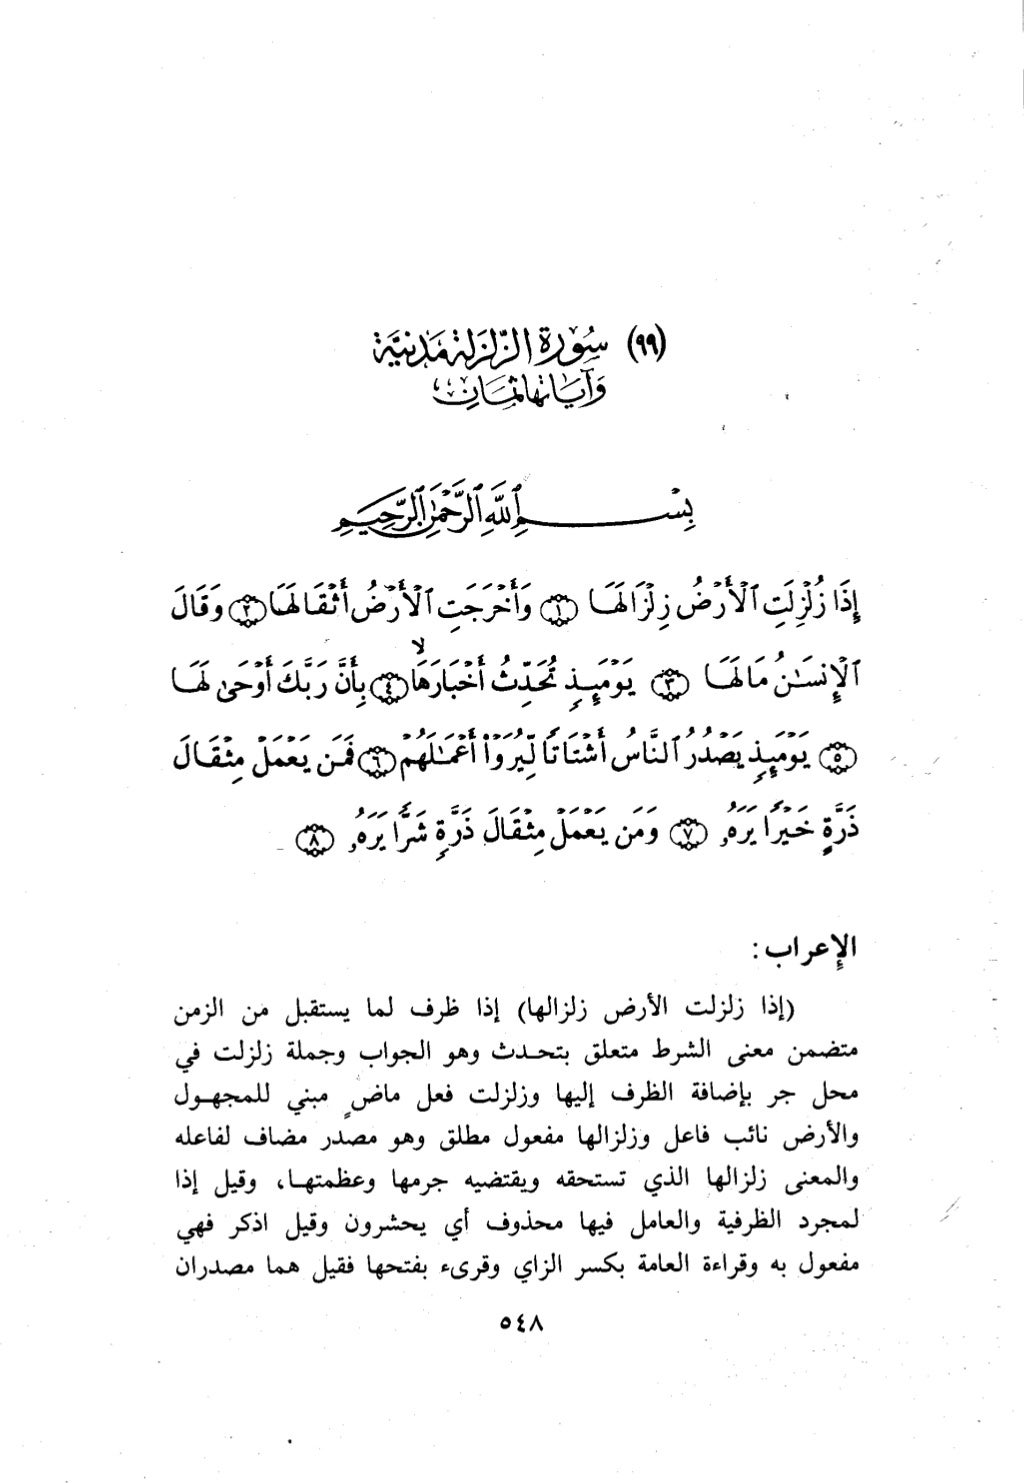 (٩٩) سُورَةِ الزَّلْزَلَةِ مَدَنِيَّة
وَآيَاتُهَا ثَمَانٍ
بِسْمِ ٱللَّهِ ٱلرَّحْمَٰنِ ٱلرَّحِيمِ
إِذَا زُلْزِلَتِ ٱلْأَرْضُ زِلْزَالَهَا ۝١ وَأَخْرَجَتِ ٱلْأَرْضُ أَثْقَالَهَا ۝٢ وَقَالَ
ٱلْإِنسَٰنُ مَا لَهَا ۝٣ يَوْمَئِذٍ تُحَدِّثُ أَخْبَارَهَاۙ ۝٤ بِأَنَّ رَبَّكَ أَوْحَىٰ لَهَا
۝٥ يَوْمَئِذٍ يَصْدُرُ ٱلنَّاسُ أَشْتَاتًا لِّيُرَوْا۟ أَعْمَٰلَهُمْ ۝٦ فَمَن يَعْمَلْ مِثْقَالَ
ذَرَّةٍ خَيْرًا يَرَهُۥ ۝٧ وَمَن يَعْمَلْ مِثْقَالَ ذَرَّةٍ شَرًّا يَرَهُۥ ۝٨
الإِعراب :
(إذا زلزلت الأرض زلزالها) إذا ظرف لما يستقبل من الزمن
متضمن معنى الشرط متعلق بتحدث وهو الجواب وجملة زلزلت في
محل جر بإضافة الظرف إليها وزلزلت فعل ماضٍ مبني للمجهول
والأرض نائب فاعل وزلزالها مفعول مطلق وهو مصدر مضاف لفاعله
والمعنى زلزالها الذي تستحقه ويقتضيه جرمها وعظمتها، وقيل إذا
لمجرد الظرفية والعامل فيها محذوف أي يحشرون وقيل اذكر فهي
مفعول به وقراءة العامة بكسر الزاي وقرىء بفتحها فقيل هما مصدران
٥٤٨